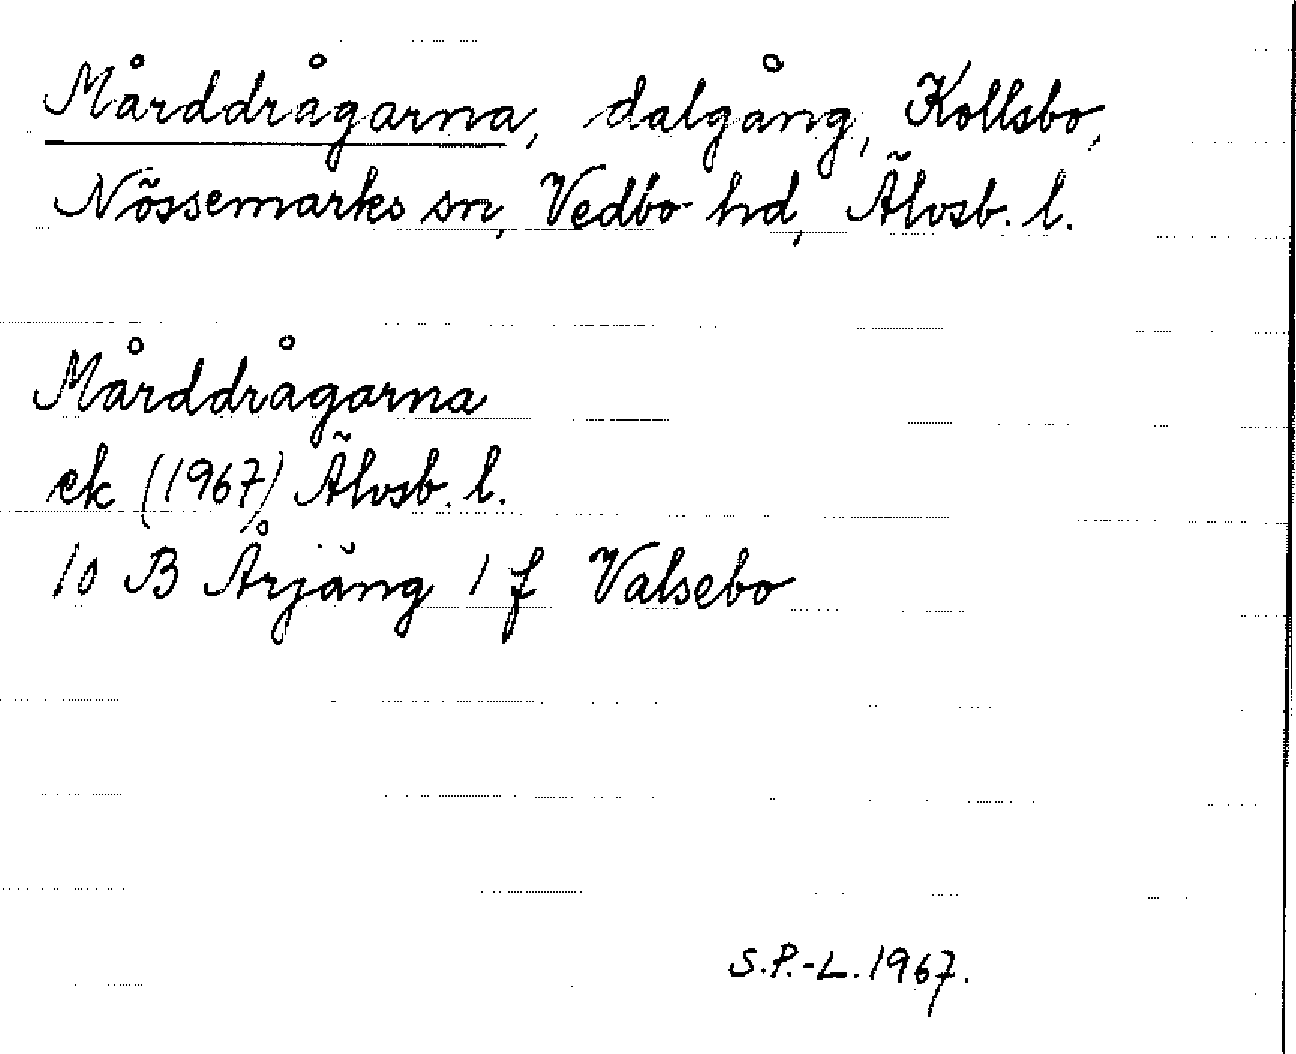 Mårddrågarna, dalgång, Kollsbo,
Nössemarks sn, Vedbo hd, Älvsb. l.
Mårddrågarna
ek (1967) Älvsb. l.
10 B Årjäng 1 f Valsebo
S.P.-L. 1967.